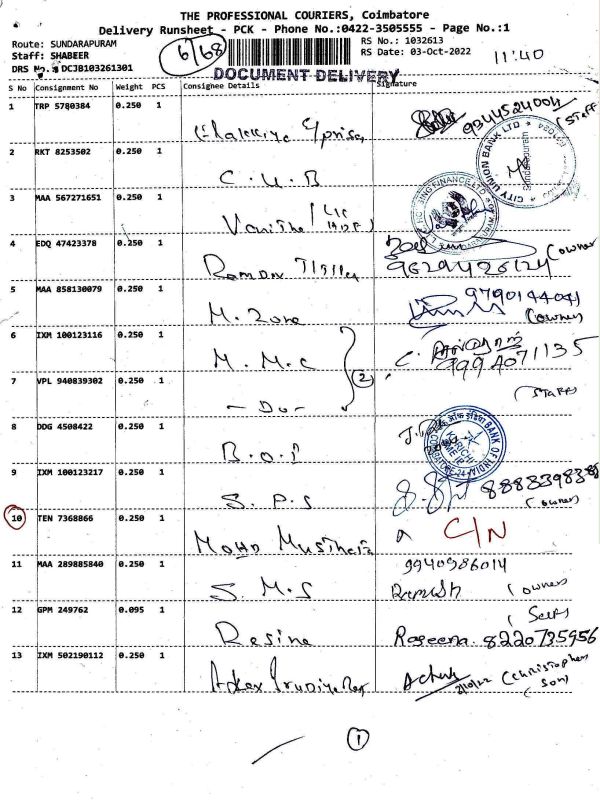 THE PROFESSIONAL COURIERS, Coimbatore
Delivery Runsheet - PCK - Phone No.:0422-3505555 - Page No.:1
Route: SUNDARAPURAM
Staff: SHABEER
DRS No.: DCJB103261301
6/68
RS No.: 1032613
RS Date: 03-Oct-2022
11:40
DOCUMENT DELIVERY
S No Consignment No Weight PCS Consignee Details Signature
1 TRP 5780384 0.250 1 9944524004 (Staff
2 RKT 8253502 0.250 1 C.U.B
CITY UNION BANK LTD
Sundarapuram
3 MAA 567271651 0.250 1 Vanitha / LIC
4 EDQ 47423378 0.250 1 Raman (owner
5 MAA 858130079 0.250 1 M. Zone 9790144041
(owner
6 IXM 100123116 0.250 1 M.M.C C.
2
7 VPL 940839302 0.250 1 - Do - (Staff
8 DDG 4508422 0.250 1 B.O.I
BANK OF INDIA
9 IXM 100123217 0.250 1 S.P.S (owner
10 TEN 7368866 0.250 1 Mohd C/N
11 MAA 289885840 0.250 1 S.M.S 9940986014
Ramesh (owner
12 GPM 249762 0.095 1 Resina Raseena. 8220735956
(Self)
13 IXM 502190112 0.250 1 (Christopher
Son)
1